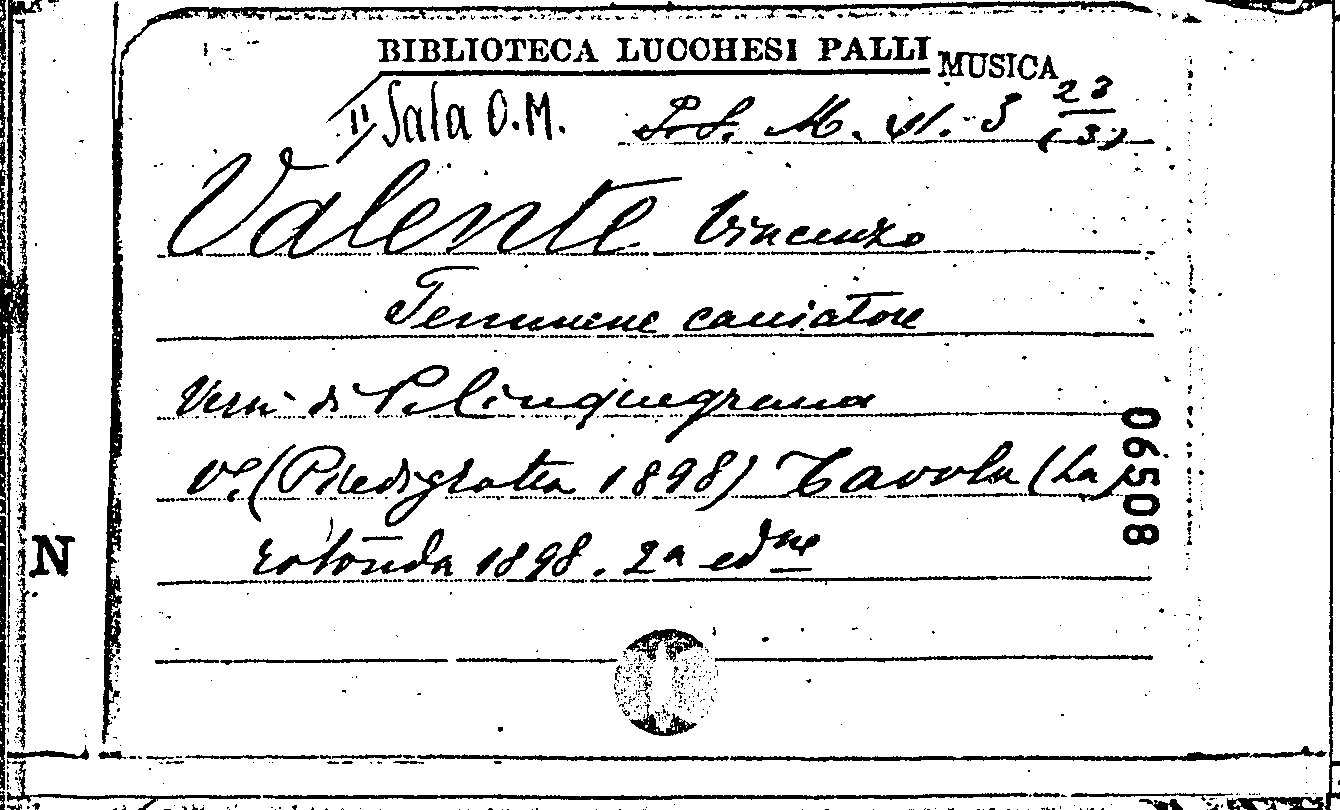 BIBLIOTECA LUCCHESI PALLI MUSICA
II Sala O.M. M. VI. 3 23 (3)
Valente Vincenzo
Femmene canciatore
Versi di P. Cinquegrana
v. (Piedigrotta 1898) Tavola (La)
rotonda 1898. 2a edne
06508
N